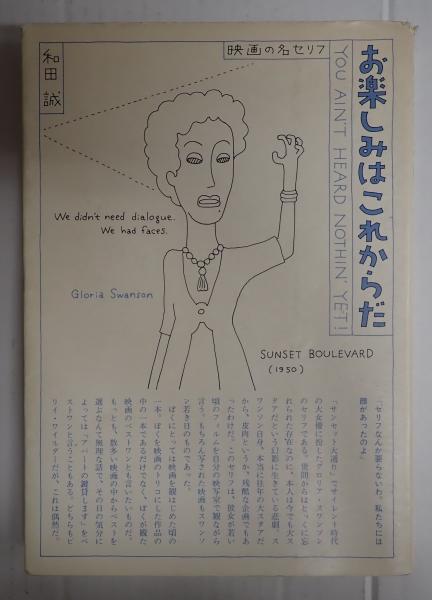 お楽しみはこれからだ
YOU AIN'T HEARD NOTHIN' YET!
映画の名セリフ
和田誠
We didn't need dialogue.
We had faces.
Gloria Swanson
SUNSET BOULEVARD
(1950)
「セリフなんか要らないわ。私たちには
顔があったのよ」
「サンセット大通り」でサイレント時代
の大女優に扮したグロリア・スワンソン
のセリフである。世間からはとっくに忘
れられた存在なのに、本人は今でも大ス
タアだという幻影に生きている悲劇。ス
ワンソン自身、本当に往年の大スタアだ
から、皮肉というか、残酷な企画でもあ
ったわけだ。このセリフは、彼女が若い
頃のフィルムを自分の映写室で観ながら
言う。もちろん写された映画もスワンソ
ン若き日のものであった。
ぼくにとっては映画を観はじめた頃の
一本。ぼくを映画のトリコにした作品の
中の一本であるだけでなく、ぼくが観た
映画のベストワンとも言いたいものだ。
もっとも、数多い映画の中からベストを
選ぶなんて無理な話で、その日の気分に
よっては「アパートの鍵貸します」をベ
ストワンと言うこともある。どちらもビ
リイ・ワイルダーだが、これは偶然だ。